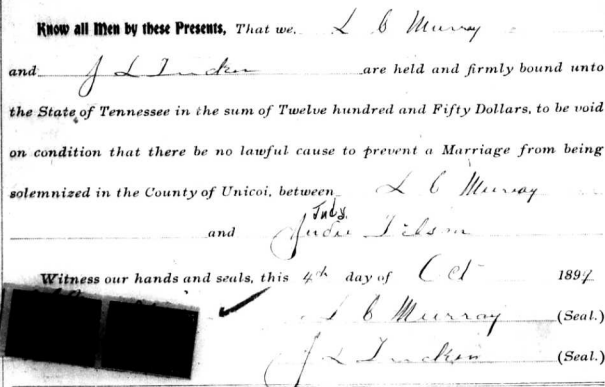 Know all Men by these Presents, That we, L C Murray
and J L Tucker are held and firmly bound unto
the State of Tennessee in the sum of Twelve hundred and Fifty Dollars, to be void
on condition that there be no lawful cause to prevent a Marriage from being
solemnized in the County of Unicoi, between L C Murray
Judy
and Judie Tilson
Witness our hands and seals, this 4th day of Oct 1897
L C Murray (Seal.)
J L Tucker (Seal.)